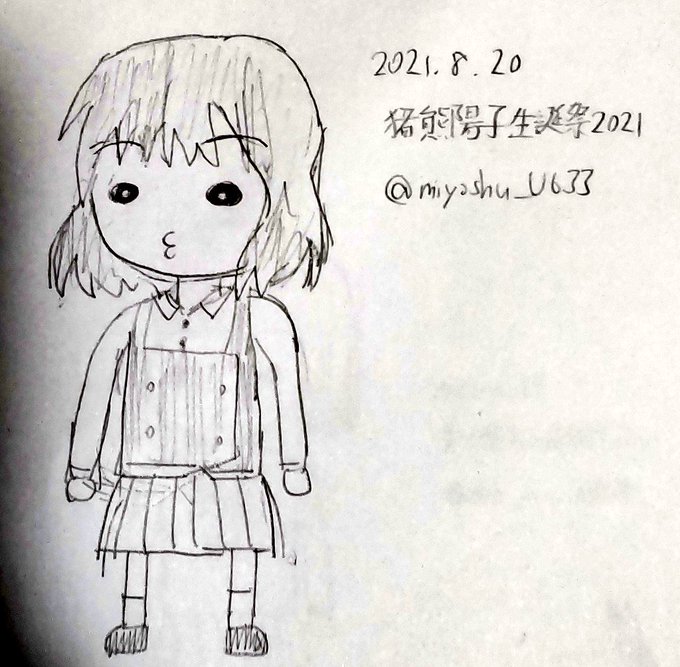 2021.8.20
猪熊陽子生誕祭2021
@miyoshu_U633